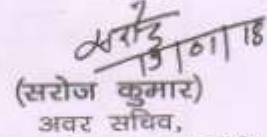 सरोज
19/01/18
(सरोज कुमार)
अवर सचिव,